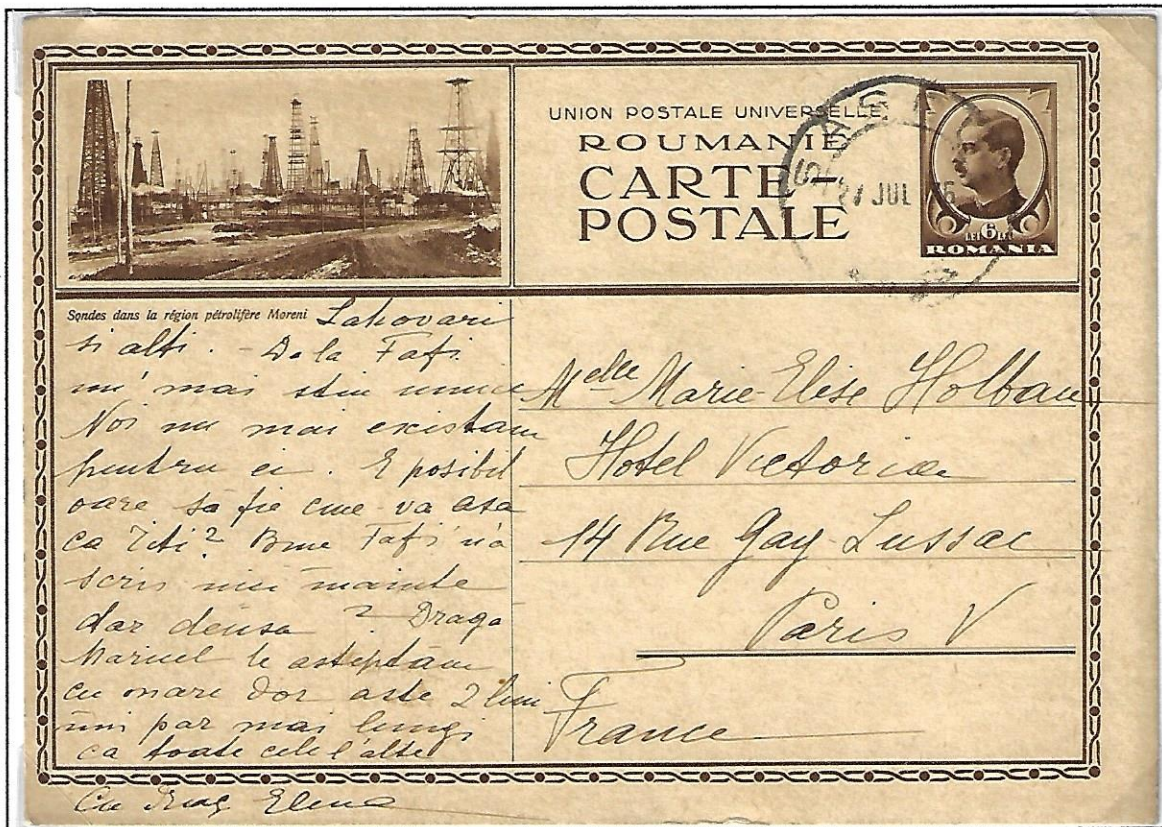 UNION POSTALE UNIVERSELLE
ROUMANIE
CARTE
POSTALE
27 JUL
6
LEI LEI
ROMANIA
Sondes dans la région pétrolifère Moreni
Lahovari
si alti. - De la Fafi
nu mai stiu nimic
Noi nu mai existam
pentru ei. E posibil
oare sa fie cine-va asa
ca Titi? Bine Fafi n'a
scris nici nainte
dar densa ? Draga
Maricel te asteptam
cu mare dor aste 2 luni
imi par mai lungi
ca toate cele l'alte
Cu drag Elena
Melle Marie-Elise Holban
Hotel Victoria
14 Rue Gay-Lussac
Paris V
France